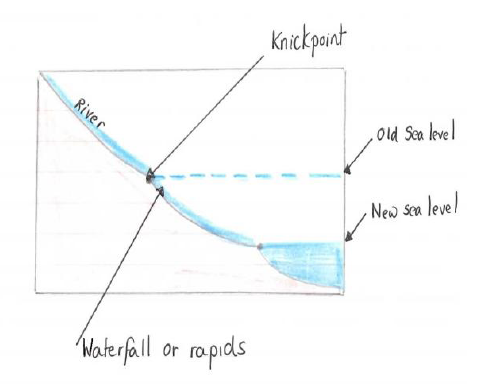 Knickpoint
River
Old Sea level
New sea level
Waterfall or rapids